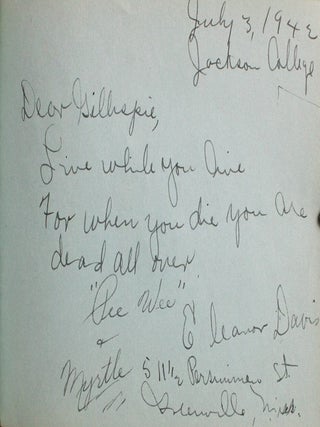 July 3, 1942
Jackson College
Dear Gillespie,
Live while you live
For when you die you are
dead all over.
"Pee Wee"
Eleanor Davis
& Myrtle
511½ Persimmon St.
Greenville, Miss.